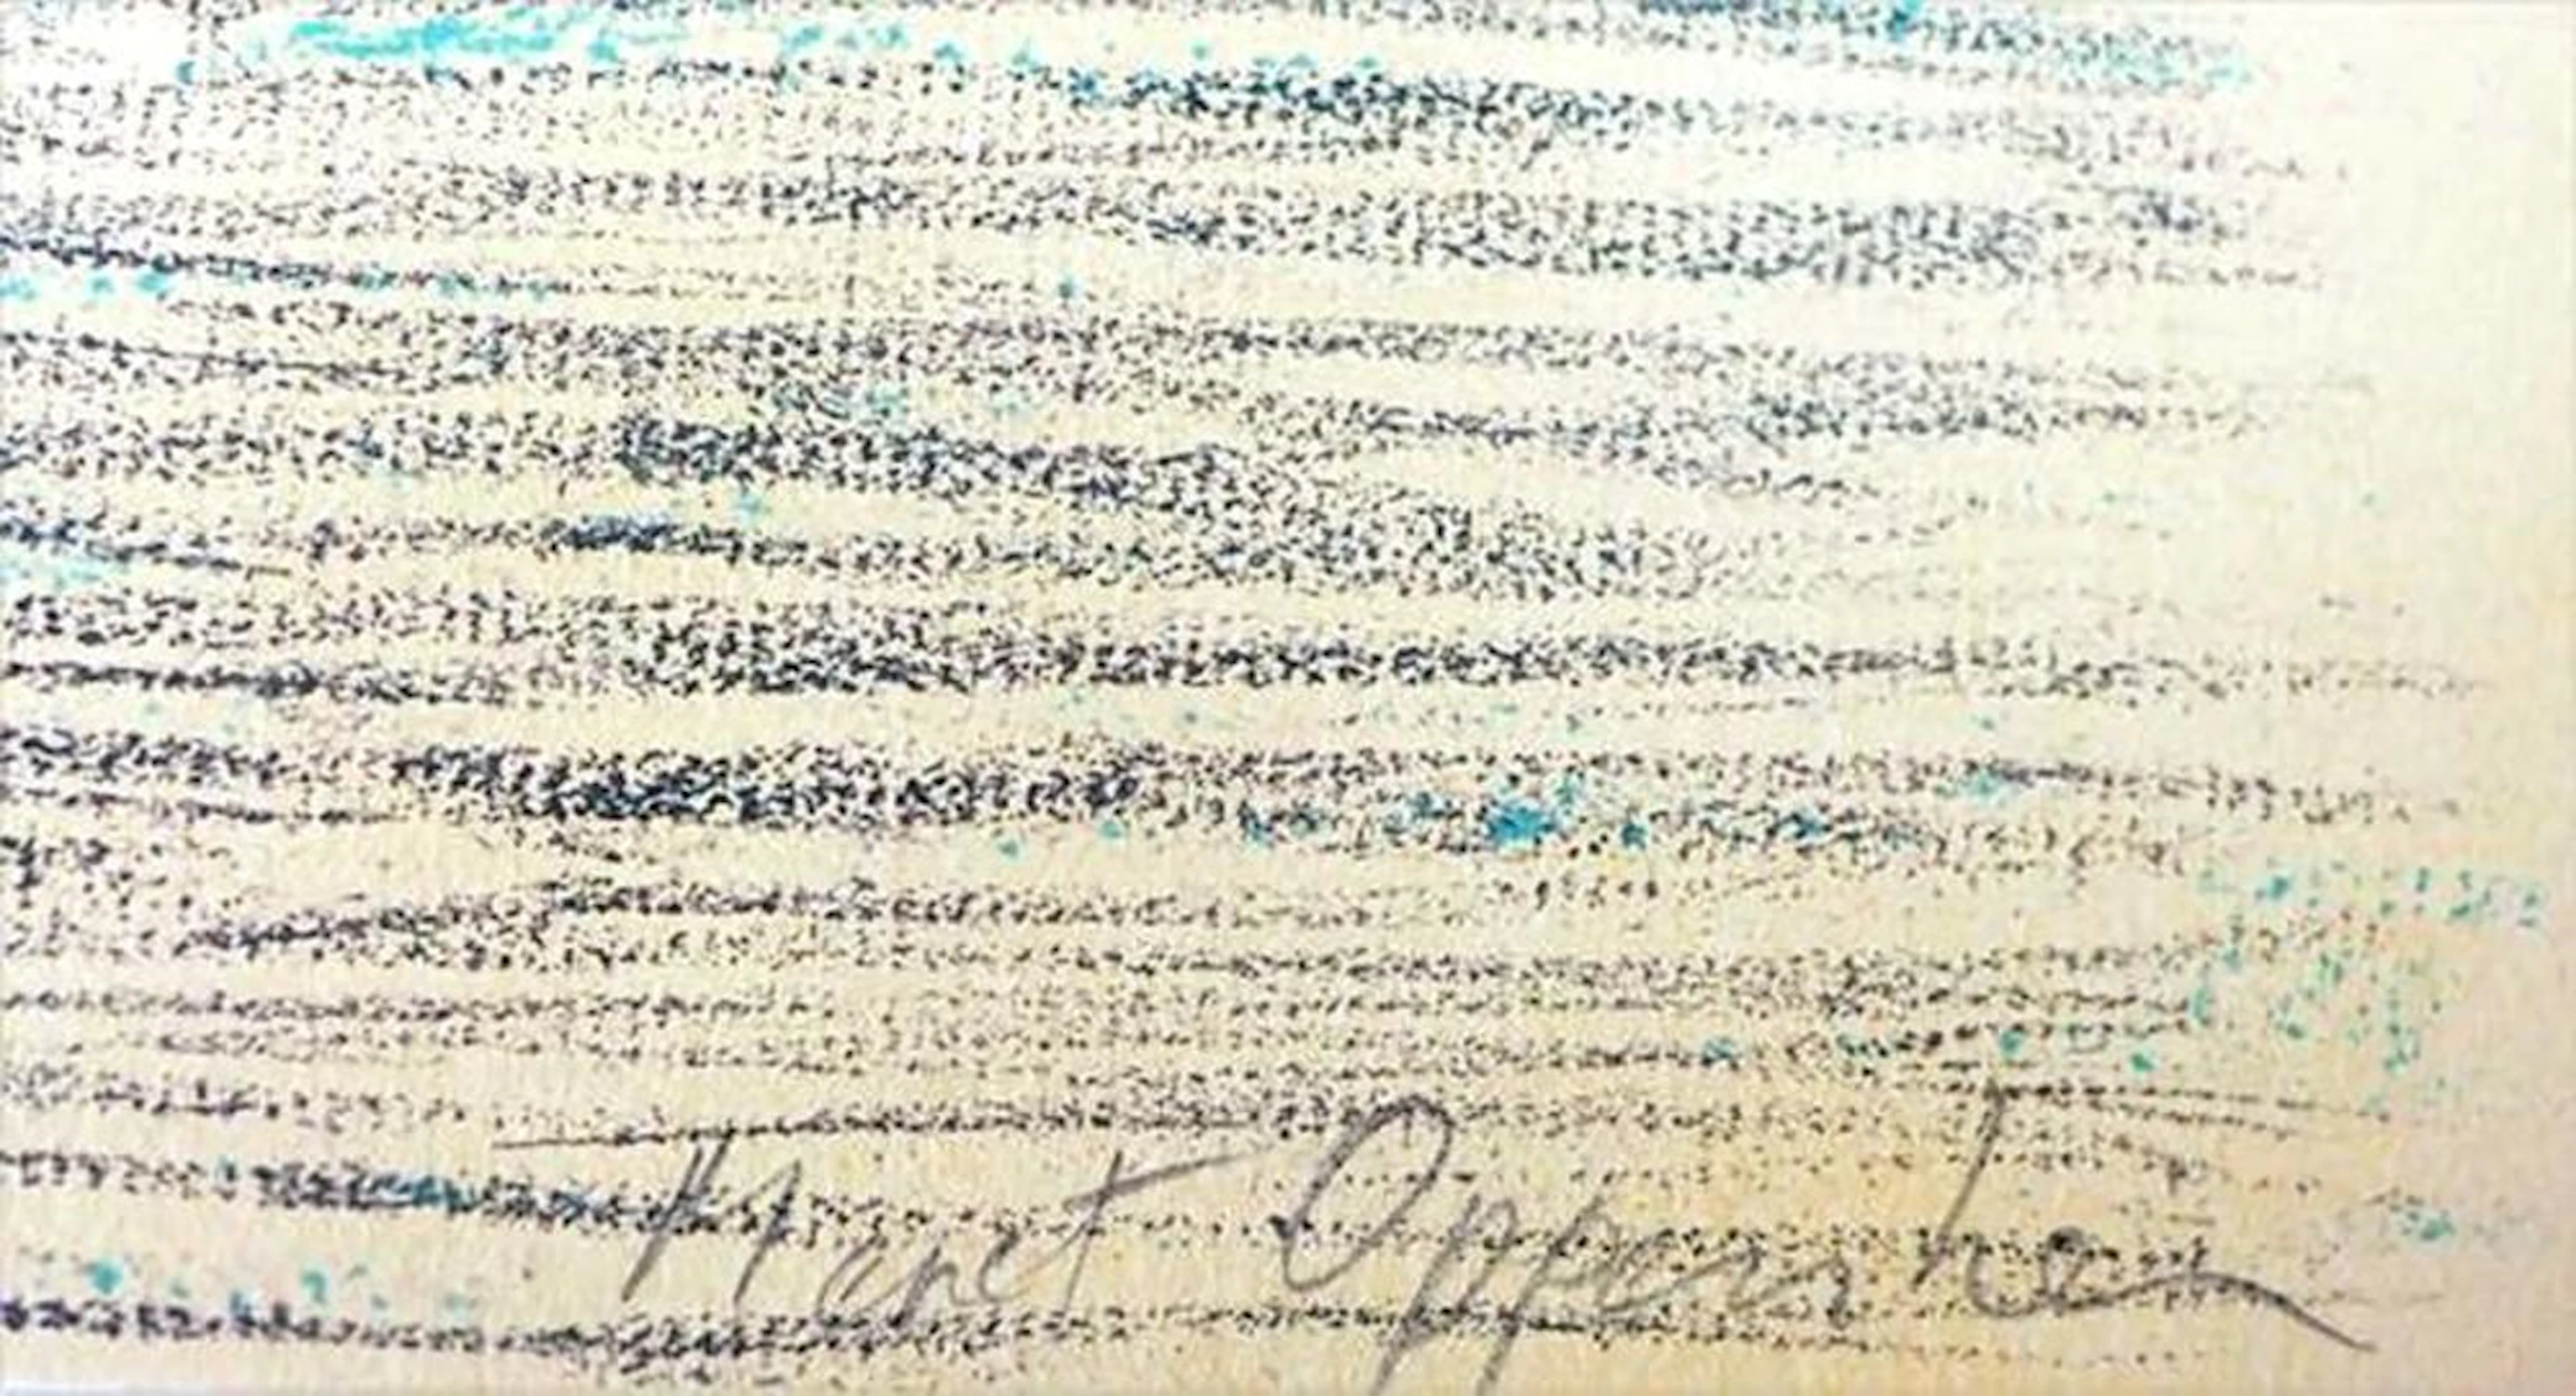 Meret Oppenheim